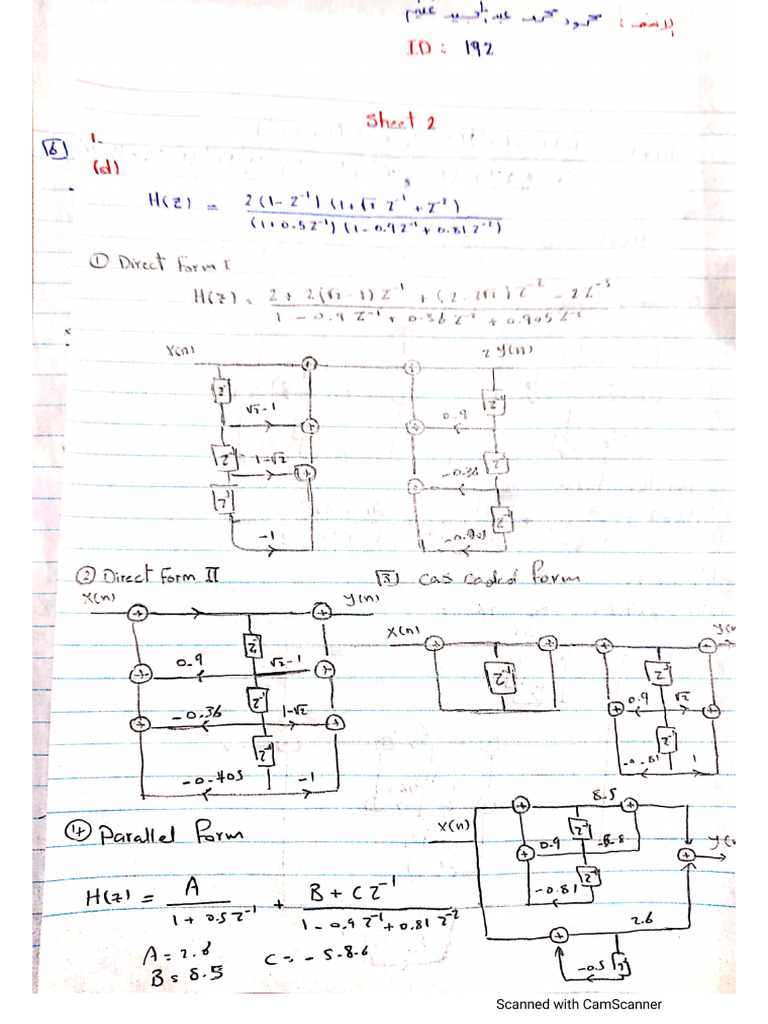 الاسم : محمود محمد عبد
ID : 192
Sheet 2
6 1.
(d)
H(Z) = 2 (1 - Z⁻¹) (1 + √2 Z⁻¹ + Z⁻²)
(1 + 0.5 Z⁻¹) (1 - 0.9 Z⁻¹ + 0.81 Z⁻²)
① Direct Form I
H(Z) = 2 + 2(√2 - 1) Z⁻¹ + (2 - 2√2) Z⁻² - 2 Z⁻³
1 - 0.9 Z⁻¹ + 0.36 Z⁻² + 0.905 Z⁻³
X(n) 2 Y(n)
Z⁻¹ Z⁻¹
√2 - 1 0.9
Z⁻¹ 1 - √2 -0.36 Z⁻¹
Z⁻¹ Z⁻¹
-1
② Direct Form II 3 Cascaded Form
X(n) Y(n)
X(n)
Z⁻¹
0.9 √2 - 1
Z⁻¹ Z⁻¹ Z⁻¹
0.9 √2
-0.36 1 - √2
Z⁻¹ Z⁻¹
-0.81 1
-0.405 -1
④ Parallel Form
X(n) 8.5
Z⁻¹
0.9
-0.81 Z⁻¹
H(Z) = A/(1 + 0.5 Z⁻¹) + (B + C Z⁻¹)/(1 - 0.9 Z⁻¹ + 0.81 Z⁻²)
2.6
A = 2.6 C = - 5.8.6
B = 8.5
-0.5 Z⁻¹
Scanned with CamScanner